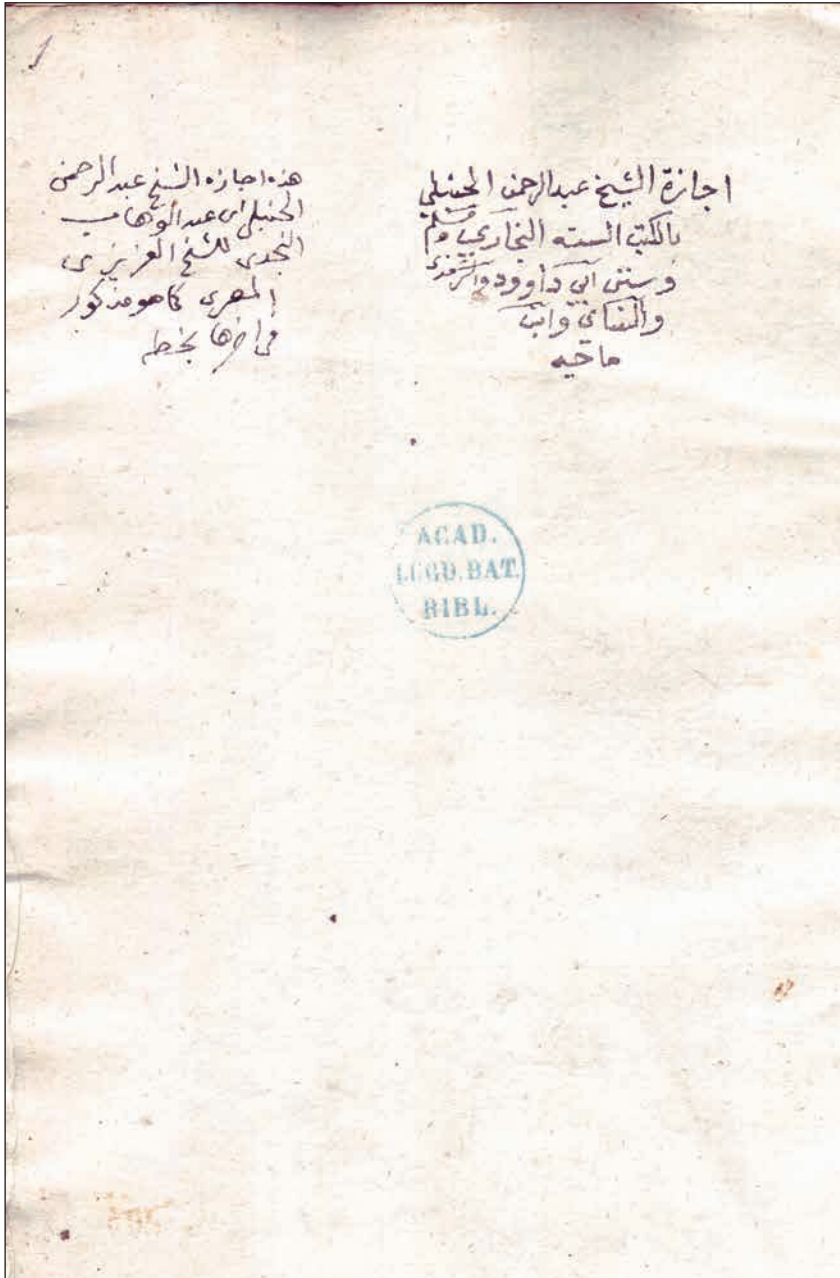 اجازة الشيخ عبد الرحمن الحنبلي
بالكتب الستة البخاري ومسلم
وسنن ابي داوود والترمذي
والنساي وابن
ماجه
هذه اجازه الشيخ عبد الرحمن
الحنبلي ابن عبد الوهاب
النجدى للشيخ العزيزى
المصرى كما هو مذكور
فى اخرها بخطه
ACAD.
LUGD.BAT.
BIBL.